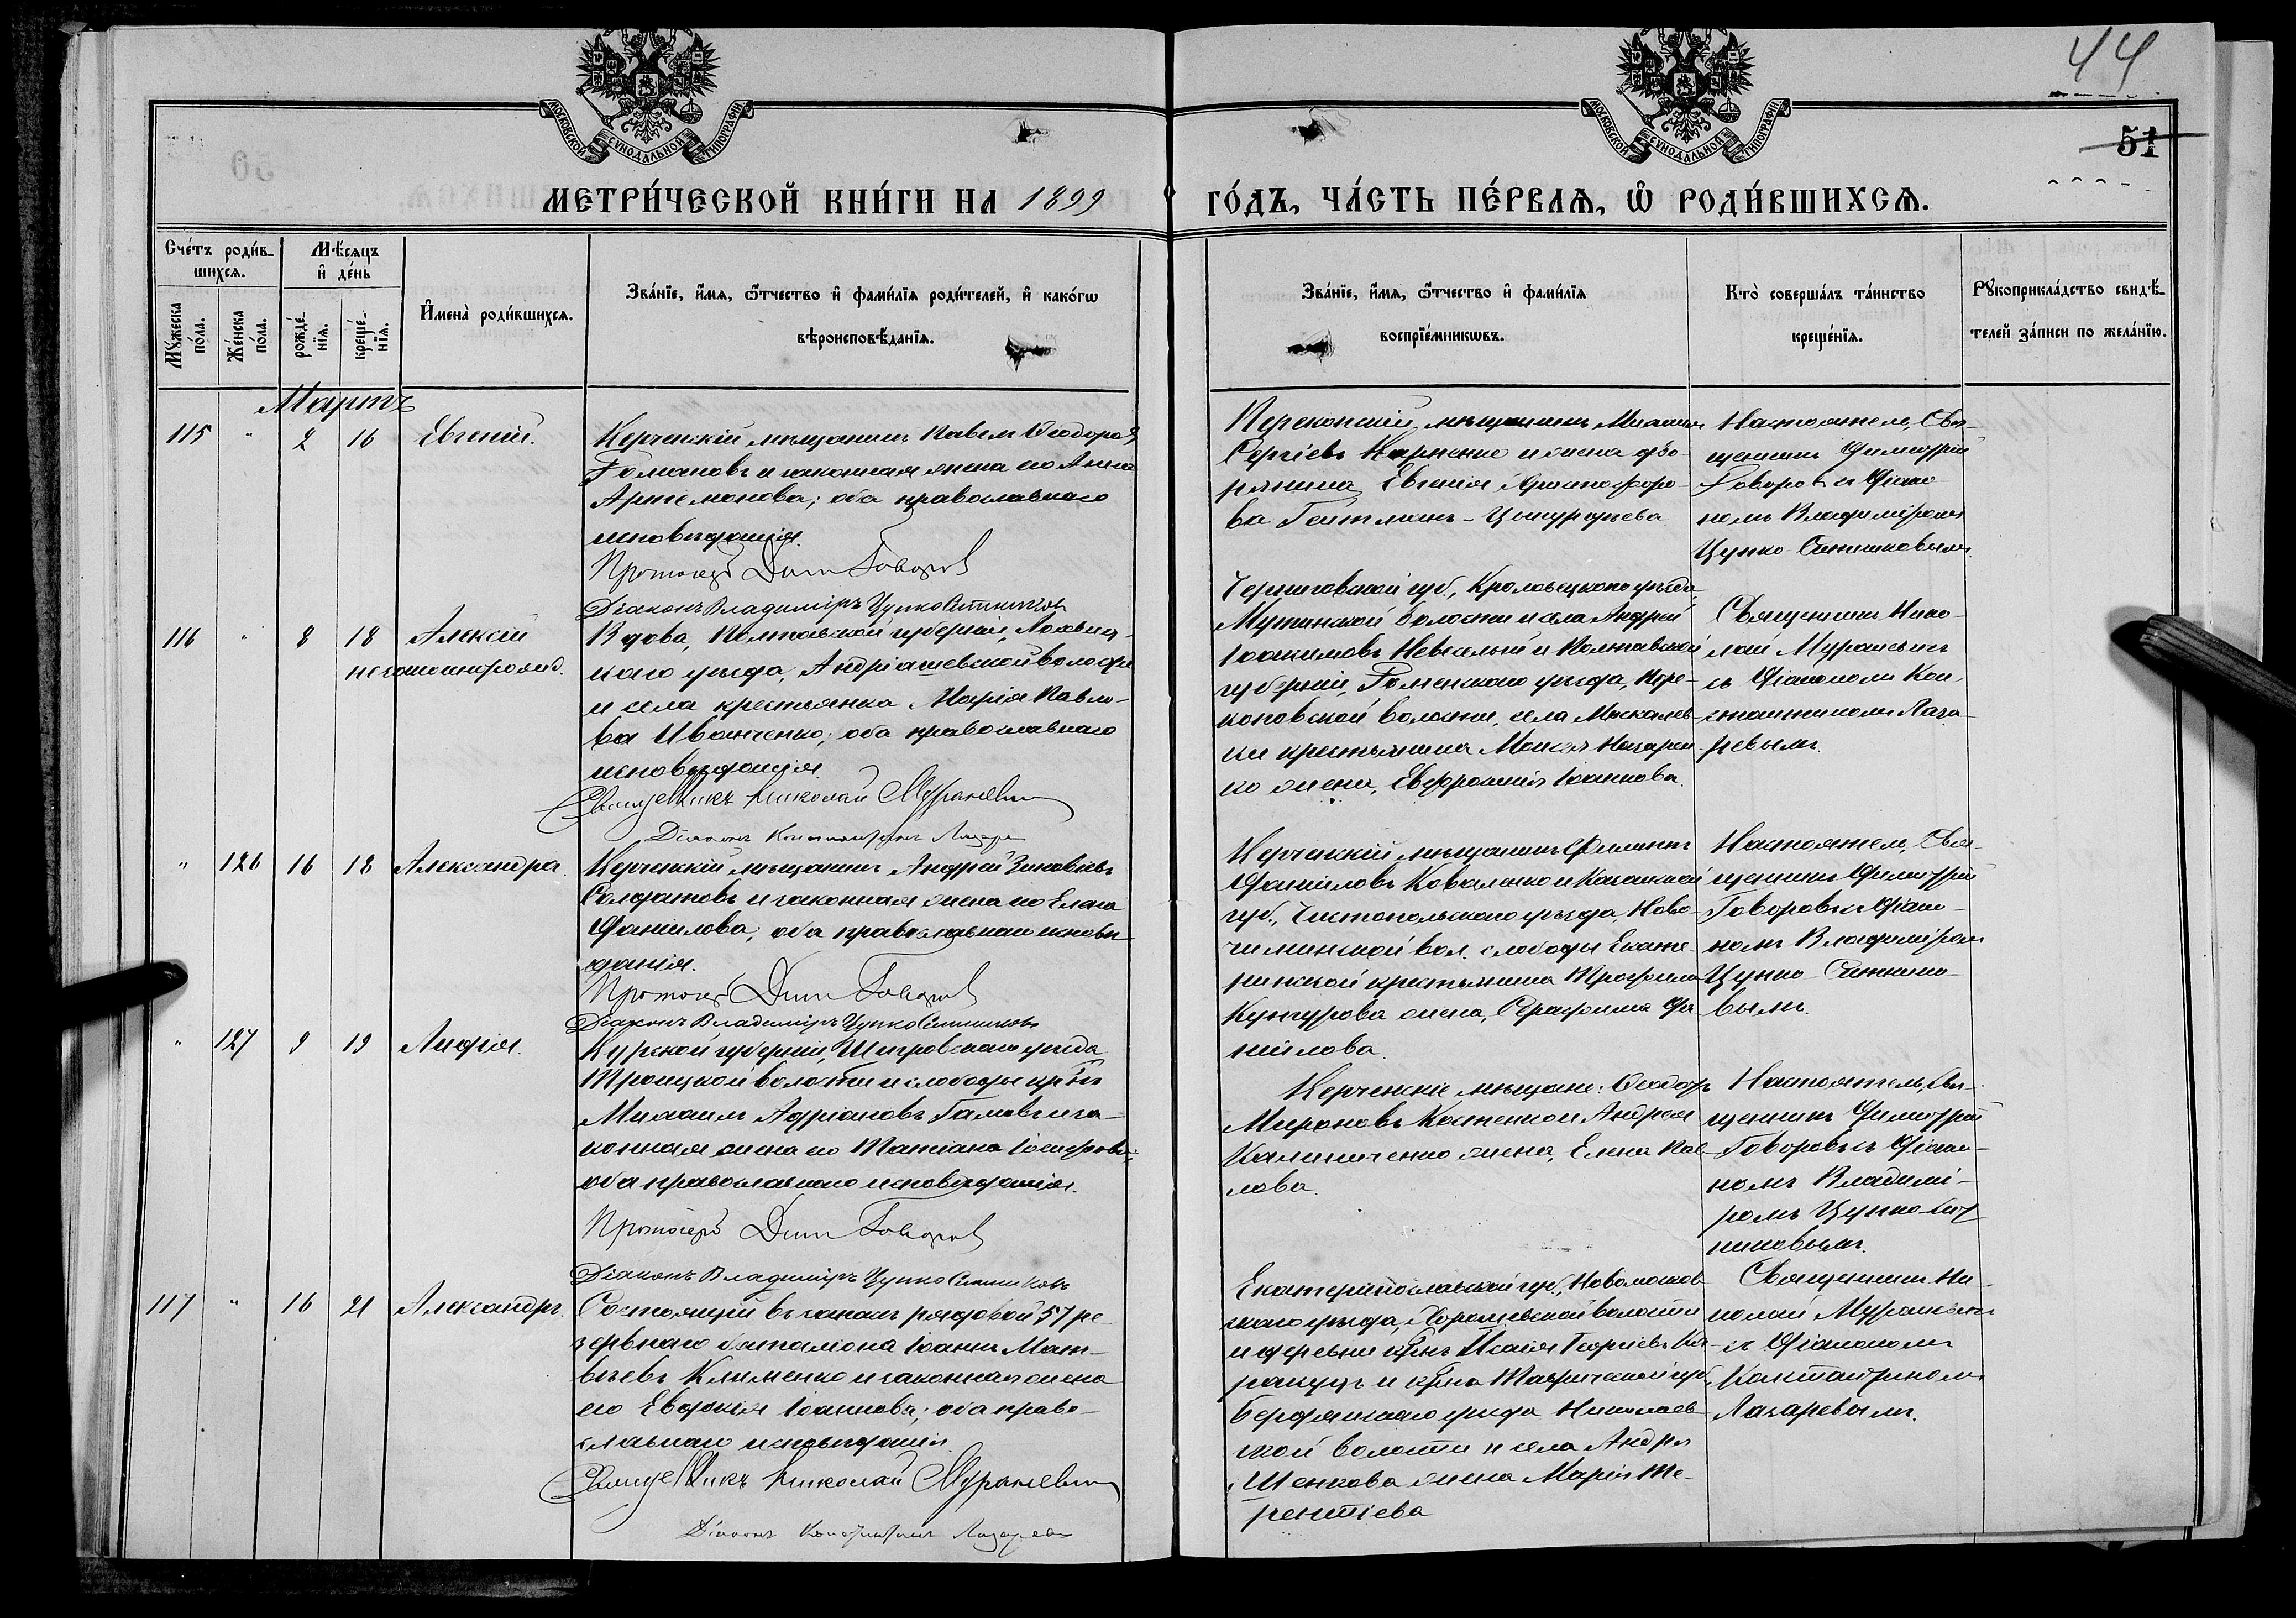 44
51
МОСКОВСКОЙ СѴНОДАЛЬНОЙ ТИПОГРАФІИ
МОСКОВСКОЙ СѴНОДАЛЬНОЙ ТИПОГРАФІИ
МЕТРИ́ЧЕСКОЙ КНИ́ГИ НА 1899 ГО́ДЪ, ЧА́СТЬ ПЕ́РВАѦ, Ѽ РОДИ́ВШИХСѦ.
Сче́тъ роди́в-
шихсѧ.
Мꙋ́жеска
по́ла.
Же́нска
по́ла.
Мѣ́сѧцъ
и҆ де́нь
рожде́-
нїѧ.
креще́-
нїѧ.
И҆мена̀ роди́вшихсѧ.
Зва́нїе, и҆́мѧ, ѻ҆́тчество и҆ фами́лїѧ роди́телей, и҆ како́гѡ
вѣроисповѣ́данїѧ.
Зва́нїе, и҆́мѧ, ѻ҆́тчество и҆ фами́лїѧ
воспрїе́мникѡвъ.
Кто̀ соверша́лъ та́инство
креще́нїѧ.
Рꙋкоприкла́дство свидѣ́-
телей за́писи по жела́нїю.
Мартъ
115 " 2 16 Евгеній.
Керченскій мѣщанинъ Павелъ Ѳеодоровъ
Гомановъ и законная жена его Анна
Артемонова; оба православнаго
исповѣданія.
Протоіер Дим Говоров
Діаконъ Владиміръ Цупко Ситников
Перекопскій мѣщанинъ Михаилъ
Сергіевъ Карпенко и жена дво-
рянина Евгенія Христофоро-
ва Гейтманъ-
Настоятель, Свя-
щенникъ Димитрій
Говоровъ и Діако-
номъ Владиміромъ
Цупко-Ситниковымъ.
116 " 8 18 Алексій
незаконнорожд.
Вдова, Полтавской губерніи, Лохвиц-
каго уѣзда, Андріяшевской волости
и села крестьянка Марія Павло-
ва Иванченко; оба православнаго
исповѣданія.
Священникъ Николай Мураневич
Діаконъ Константинъ Лазарев
Черниговской губ., Кролевецкаго уѣзда,
Мутинской волости и села Андрей
Іоакимовъ Невеселый и Полтавской
губерніи, Роменскаго уѣзда, Коро-
вской волости, села Москалев-
ки крестьянина Моисея Назарен-
ко жена, Евфросинія Іоаннова.
Священникъ Нико-
лай Мураневичъ
съ Діакономъ Кон-
стантиномъ Лаза-
ревымъ.
" 126 16 18 Александра.
Керченскій мѣщанинъ Андрей Зиновіевъ
Солдатовъ и законная жена его Елена
Даніилова; оба православнаго исповѣ-
данія.
Протоіер Дим Говоров
Діаконъ Владиміръ Цупко Ситников
Керченскій мѣщанинъ Филиппъ
Даніиловъ Коваленко и Казанской
губ., Чистопольскаго уѣзда, Ново-
вол. слободы Екате-
рининской крестьянина Трофима
Кунгурова жена, Серафима Да-
ніилова.
Настоятель, Свя-
щенникъ Димитрій
Говоровъ и Діако-
номъ Владиміромъ
Цупко-Ситнико-
вымъ.
" 127 9 19 Лидія.
Курской губерніи, Щигровскаго уѣзда
Троицкой волости и слободы кр-нъ
Михаилъ Адріановъ Гамовъ и за-
конная жена его Татіана Іосифова;
оба православнаго исповѣданія.
Протоіер Дим Говоров
Діаконъ Владиміръ Цупко Ситников
Керченскіе мѣщане: Ѳеодоръ
Мироновъ Костенко и Андрея
Калиниченко жена, Елена Пав-
лова.
Настоятель, Свя-
щенникъ Димитрій
Говоровъ съ Діако-
номъ Владимі-
ромъ Цупко-Сит-
никовымъ.
117 " 16 21 Александръ.
Состоящій въ запасѣ рядовой 57 ре-
зервнаго баталіона Іоаннъ Мат-
вѣевъ Клименко и законная жена
его Евдокія Іоаннова; оба право-
славнаго исповѣданія.
Священникъ Николай Мураневич
Діаконъ Константинъ Лазарев
Екатеринославской губ., Новомосков-
скаго уѣзда, волости
и деревни кр-нъ Исаія Георгіевъ
и кр-на Таврической губ.,
Бердянскаго уѣзда Николаев-
ской волости и села Андрея
Шенкова жена Марія Те-
рентіева
Священникъ Ни-
колай Мураневичъ
съ Діакономъ
Константиномъ
Лазаревымъ.